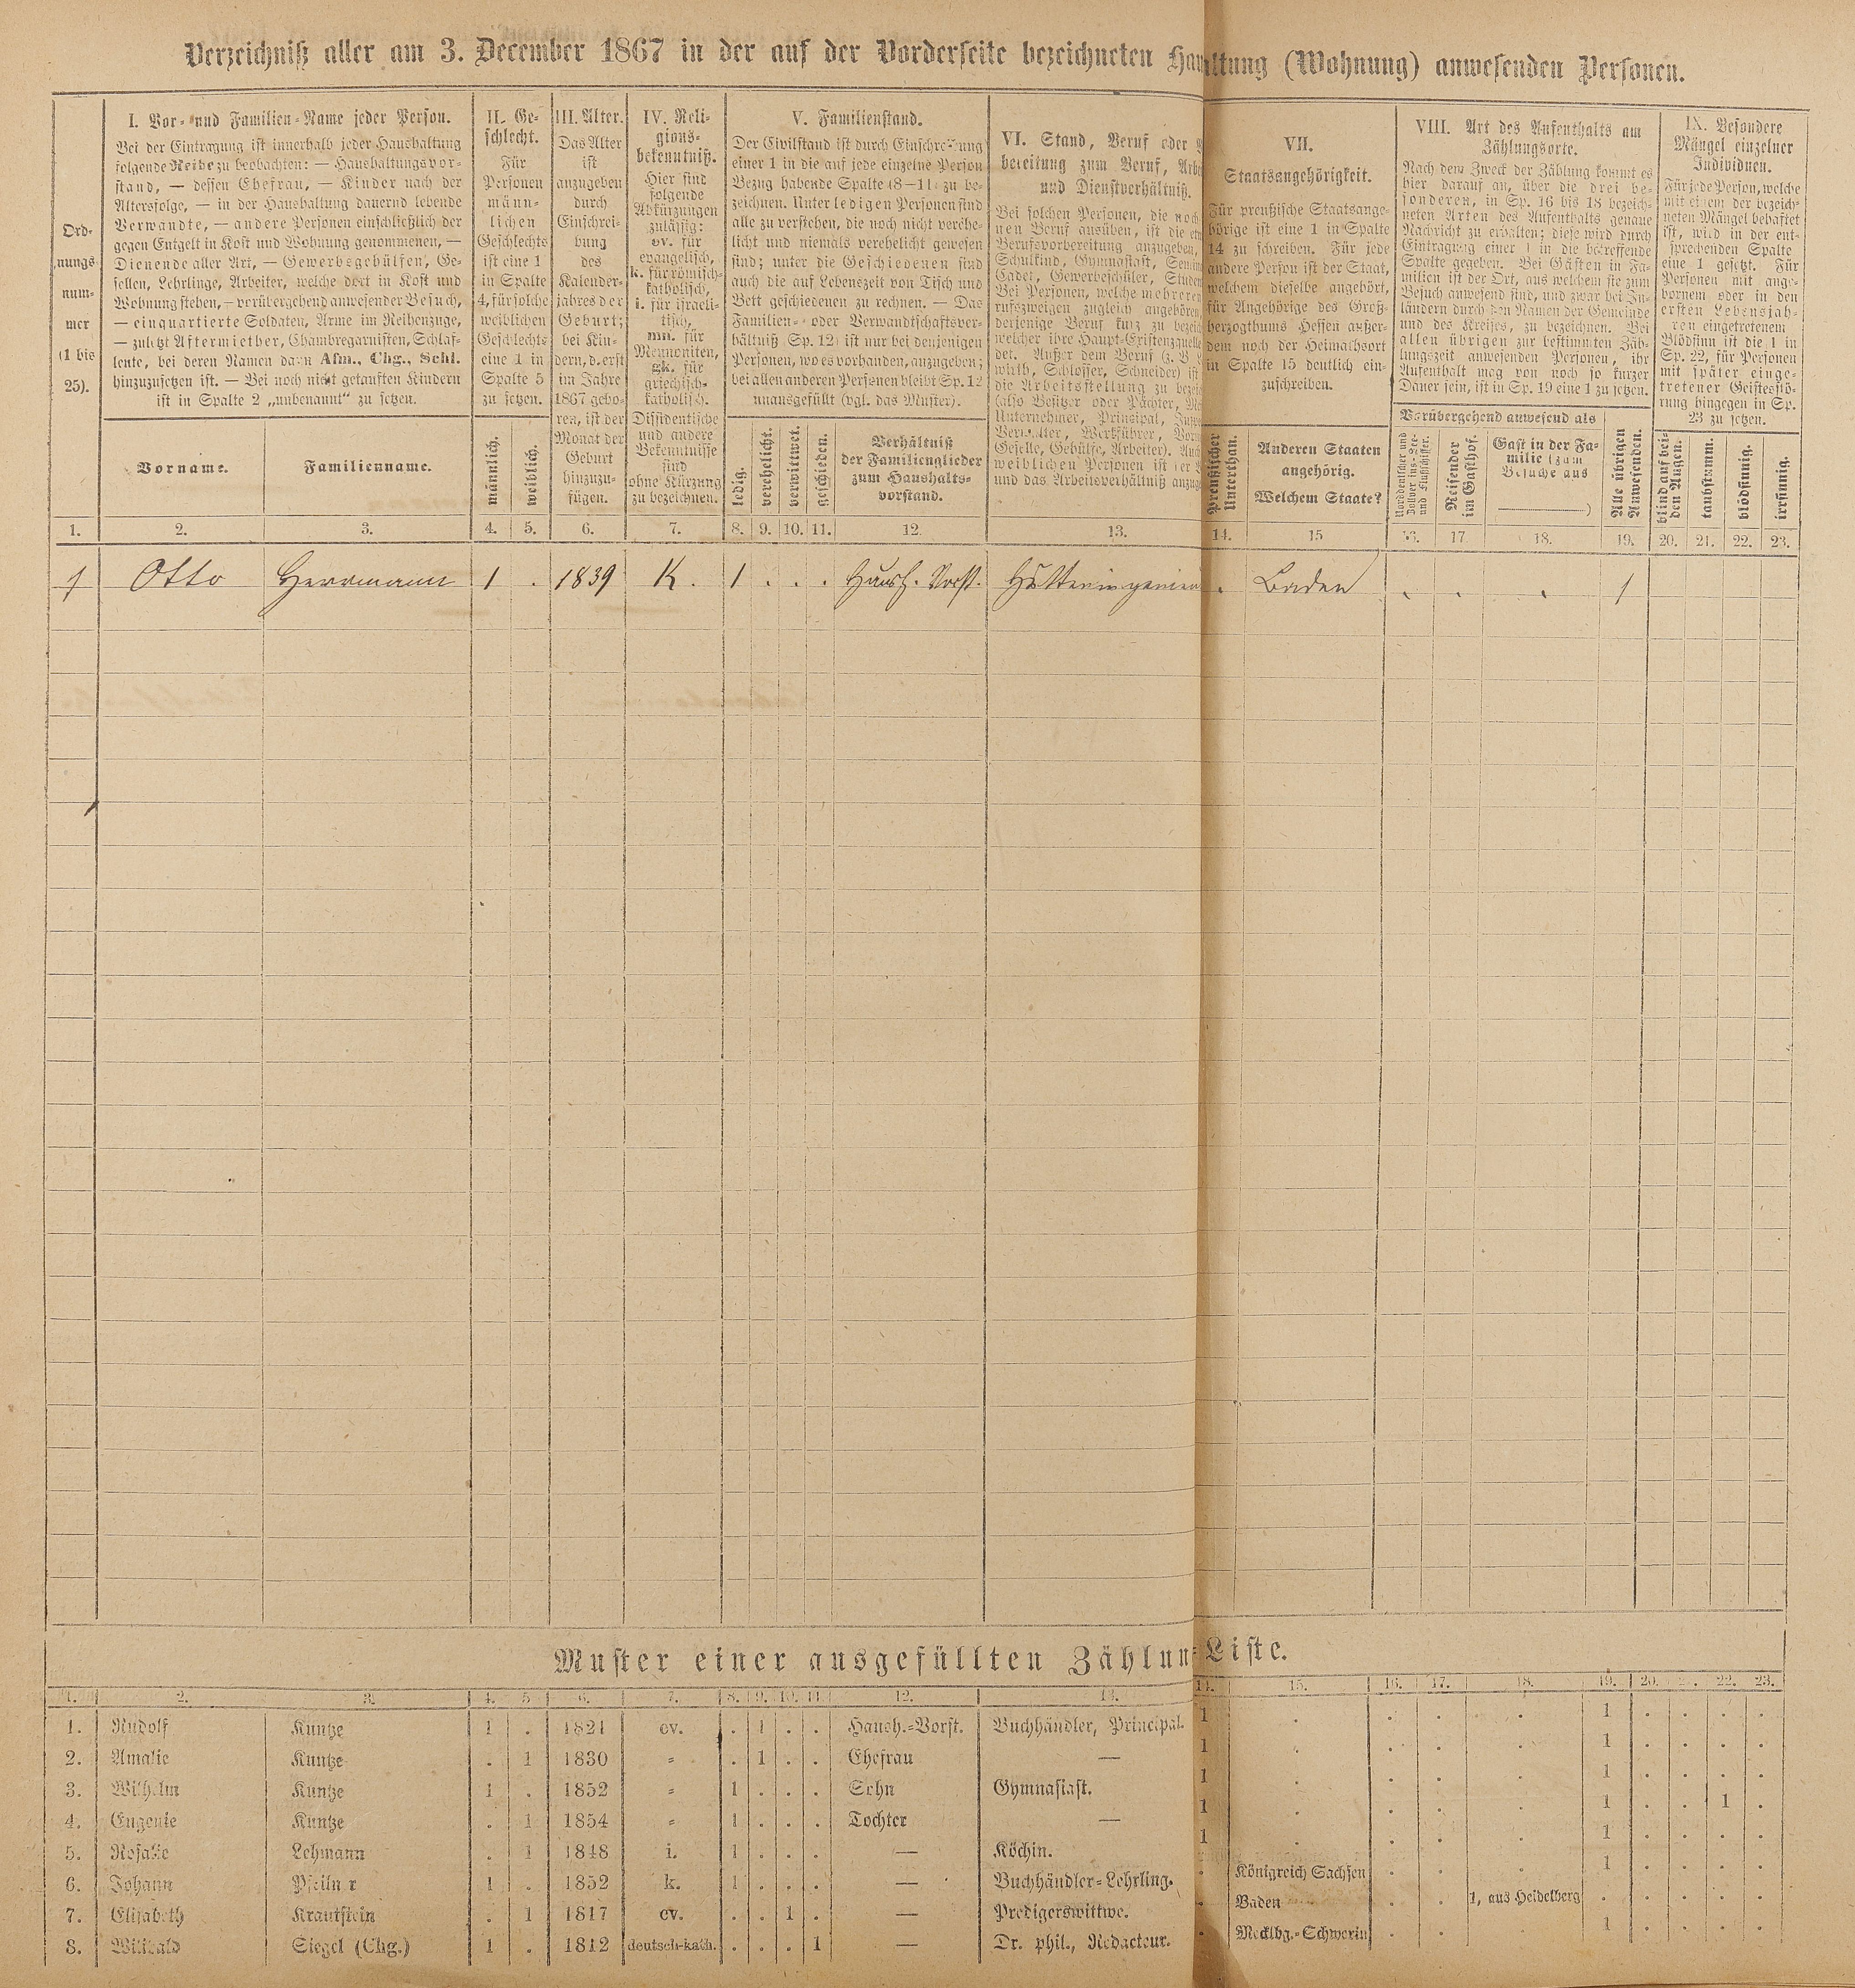 Verzeichniß aller am 3. December 1867 in der auf der Vorderseite bezeichneten Haushaltung (Wohnung) anwesenden Personen.
Ord-
nungs-
num-
mer
(1 bis
25).
I. Vor- und Familien-Name jeder Person.
Bei der Eintragung ist innerhalb jeder Haushaltung
folgende Reihe zu beobachten: — Haushaltungsvor-
stand, — dessen Ehefrau, — Kinder nach der
Altersfolge, — in der Haushaltung dauernd lebende
Verwandte, — andere Personen einschließlich der
gegen Entgelt in Kost und Wohnung genommenen, —
Dienende aller Art, — Gewerbsgehülfen, Ge-
sellen, Lehrlinge, Arbeiter, welche dort in Kost und
Wohnung stehen, — vorübergehend anwesender Besuch,
— einquartierte Soldaten, Arme im Reihenzuge,
— zuletzt Aftermiether, Chambregarnisten, Schlaf-
leute, bei deren Namen dann Afm., Chg., Schl.
hinzuzusetzen ist. — Bei noch nicht getauften Kindern
ist in Spalte 2 „unbenannt“ zu setzen.
Vorname.
Familienname.
II. Ge-
schlecht.
Für
Personen
männ-
lichen
Geschlechts
ist eine 1
in Spalte
4, für solche
weiblichen
Geschlechts
eine 1 in
Spalte 5
zu setzen.
männlich.
weiblich.
III. Alter.
Das Alter
ist
anzugeben
durch
Einschrei-
bung
des
Kalender-
jahres der
Geburt;
bei Kin-
dern, d. erst
im Jahre
1867 gebo-
ren, ist der
Monat der
Geburt
hinzuzu-
fügen.
IV. Reli-
gions-
bekenntniß.
Hier sind
folgende
Abkürzungen
zulässig:
ev. für
evangelisch,
k. für römisch-
katholisch,
i. für israeli-
tisch,
mn. für
Mennoniten,
gk. für
griechisch-
katholisch.
Dissidentische
und andere
Bekenntnisse
sind
ohne Kürzung
zu bezeichnen.
V. Familienstand.
Der Civilstand ist durch Einschreibung
einer 1 in die auf jede einzelne Person
Bezug habende Spalte (8—11) zu be-
zeichnen. Unter ledigen Personen sind
alle zu verstehen, die noch nicht verehe-
licht und niemals verehelicht gewesen
sind; unter die Geschiedenen sind
auch die auf Lebenszeit von Tisch und
Bett geschiedenen zu rechnen. — Das
Familien- oder Verwandtschaftsver-
hältniß (Sp. 12) ist nur bei denjenigen
Personen, wo es vorhanden, anzugeben;
bei allen anderen Personen bleibt Sp. 12
unausgefüllt (vgl. das Muster).
ledig.
verehelicht.
verwittwet.
geschieden.
Verhältniß
der Familienglieder
zum Haushalts-
vorstand.
VI. Stand, Beruf oder
bereitung zum Beruf, Arb
und Dienstverhältniß.
Bei solchen Personen, die noch
nen Beruf ausüben, ist die et
Berufsvorbereitung anzugeben,
Schulkind, Gymnasiast, Semin
Cadet, Gewerbeschüler, Studen
Bei Personen, welche mehreren
rufszweigen zugleich angehören,
derjenige Beruf kurz zu bezeic
welcher ihre Haupt-Existenzquelle
det. Außer dem Beruf (z. B.
wirth, Schlosser, Schneider) ist
die Arbeitsstellung zu bezeic
(also Besitzer oder Pächter,
Unternehmer, Principal,
Verwalter, Werkführer,
Geselle, Gehülfe, Arbeiter). Auch
weiblichen Personen ist der
und das Arbeitsverhältniß anzuge
VII.
Staatsangehörigkeit.
Für preußische Staatsange-
hörige ist eine 1 in Spalte
14 zu schreiben. Für jede
andere Person ist der Staat,
welchem dieselbe angehört,
für Angehörige des Groß-
herzogthums Hessen außer-
dem noch der Heimathsort
in Spalte 15 deutlich ein-
zuschreiben.
Preußischer
Unterthan.
Anderen Staaten
angehörig.
Welchem Staate?
VIII. Art des Aufenthalts am
Zählungsorte.
Nach dem Zweck der Zählung kommt es
hier darauf an, über die drei be-
sonderen, in Sp. 16 bis 18 bezeich-
neten Arten des Aufenthalts genaue
Nachricht zu erhalten; diese wird durch
Eintragung einer 1 in die betreffende
Spalte gegeben. Bei Gästen in Fa-
milien ist der Ort, aus welchem sie zum
Besuch anwesend sind, und zwar bei In-
ländern durch den Namen der Gemeinde
und des Kreises, zu bezeichnen. Bei
allen übrigen zur bestimmten Zäh-
lungszeit anwesenden Personen, ihr
Aufenthalt mag von noch so kurzer
Dauer sein, ist in Sp. 19 eine 1 zu setzen.
Vorübergehend anwesend als
Norddeutscher und
Zollvereins-See-
und Flußschiffer.
Reisender
im Gasthof.
Gast in der Fa-
milie (zum
Besuche aus
)
Alle übrigen
Anwesenden.
IX. Besondere
Mängel einzelner
Individuen.
Für jede Person, welche
mit einem der bezeich-
neten Mängel behaftet
ist, wird in der ent-
sprechenden Spalte
eine 1 gesetzt. Für
Personen mit ange-
bornem oder in den
ersten Lebensjah-
ren eingetretenem
Blödsinn ist die 1 in
Sp. 22, für Personen
mit später einge-
tretener Geistesstö-
rung hingegen in Sp.
23 zu setzen.
blind auf bei-
den Augen.
taubstumm.
blödsinnig.
irrsinnig.
1. 2. 3. 4. 5. 6. 7. 8. 9. 10. 11. 12. 13. 14. 15 16. 17. 18. 19. 20. 21. 22. 23.
1 Otto Herrmann 1 . 1839 K. 1 . . . Haush. Vorst. Hütteningenieu . Baden . . . 1
Muster einer ausgefüllten Zählungs-Liste.
1. 2. 3. 4. 5. 6. 7. 8. 9. 10. 11. 12. 13. 14. 15. 16. 17. 18. 19. 20. 21. 22. 23.
1. Rudolf Kuntze 1 . 1821 ev. . 1 . . Haush.-Vorst. Buchhändler, Principal. 1 . . . . 1 . . . .
2. Amalie Kuntze . 1 1830 = . 1 . . Ehefrau — 1 . . . . 1 . . . .
3. Wilhelm Kuntze 1 . 1852 = 1 . . . Sohn Gymnasiast. 1 . . . . 1 . . . .
4. Eugenie Kuntze . 1 1854 = 1 . . . Tochter — 1 . . . . 1 . . 1 .
5. Rosalie Lehmann . 1 1848 i. 1 . . . — Köchin. 1 . . . . 1 . . . .
6. Johann Pfeilner 1 . 1852 k. 1 . . . — Buchhändler-Lehrling. . Königreich Sachsen . . . 1 . . . .
7. Elisabeth Krautstein . 1 1817 ev. . . 1 . — Predigerswittwe. . Baden . . 1, aus Heidelberg . . . . .
8. Willibald Siegel (Chg.) 1 . 1812 deutsch-kath. . . . 1 — Dr. phil., Redacteur. . Mecklbg.-Schwerin . . . 1 . . . .